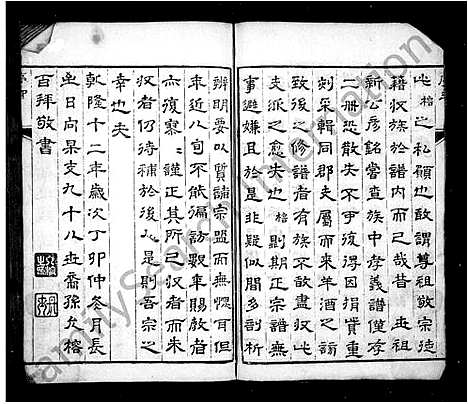 此榕之私願也敢謂尊祖敬宗徒
籍収族於譜内而已哉昔 世祖
新公彥銘嘗查族中孝義譜僅存
一冊恐散失不 復 因捐貲重
刻采輯同郡 屬而来羊酒之
致後之修譜者有族不敢盡収此
支派之愈失也 榕 則期正宗譜無
事避嫌且於是非疑似間多剖析
辨明要以質諸宗盟而無 耳但
年近八旬不能徧訪數年賜教者
六復寥寥謹正其所已収者而未
収者仍待補於後人是則吾宗之
幸也夫
乾隆十二年歲次丁卯仲冬月長
至日尚杲支九十八世裔孫允榕
百拜敬書
FamilySearch International